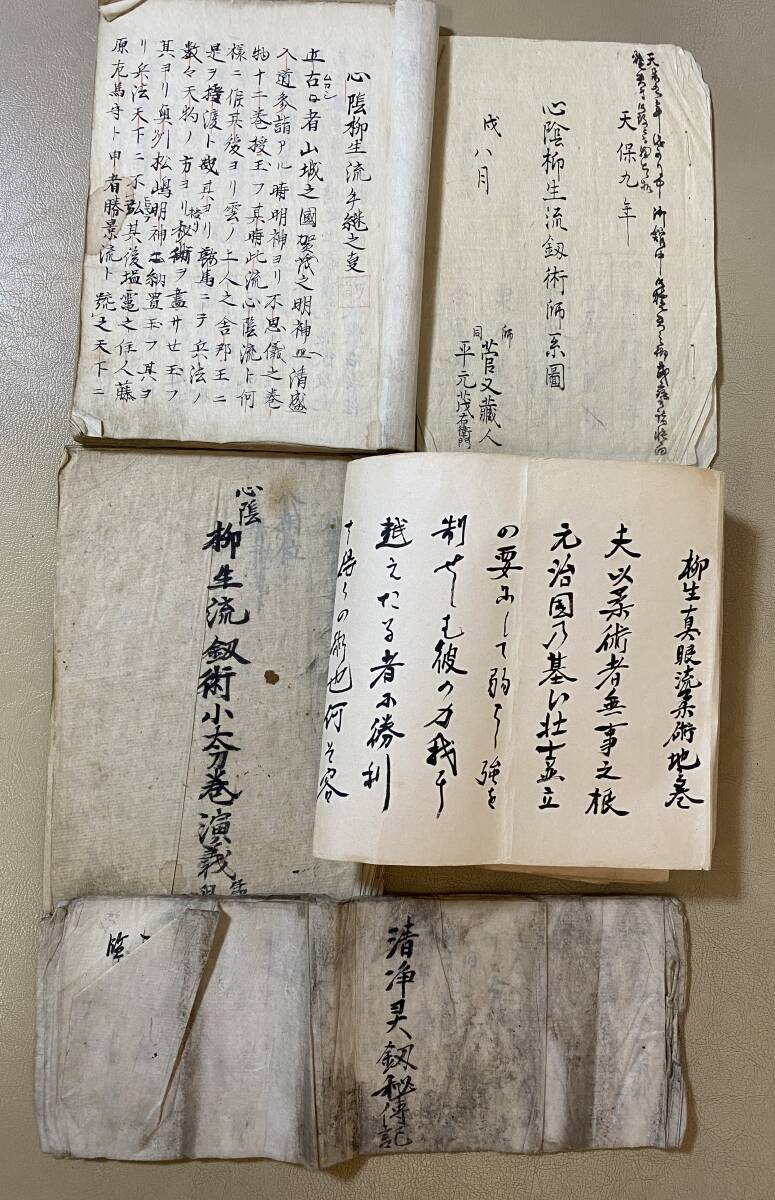 心陰柳生流手継之事
正古ムカシ日者山城之國賀茂之明神㽵清盛
入道参詣アル時明神ヨリ不思儀之巻
物十二巻授玉フ其時此流心陰流ト何
様ニ候其後ヨリ雲ノ上人之舎那王ニ
是ヲ授渡ト成其ヨリ鞍馬ニテ兵法ノ
数々天狗ノ方ヨリ秘術ヲ盡サセ玉フ
其ヨリ奥州松嶋明神ニ納置玉フ其ヨ
リ兵法天下ニ不弘其後塩竃之住人藤
原左馬守ト申者勝景流ト號之天下ニ
天保九年
心陰柳生流釼術師系圖
戌八月
師 菅又藏人
同 平元茂右衛門
心陰
柳生流釼術小太刀巻演義
柳生真眼流柔術地巻
夫以柔術者無事之根
元治国乃基ひ壮士孟立
の要にして弱よく強を
制せしむ彼の力我に
越えたる者に勝利
の術也何そ容
陰
清浄灵釼秘傳記